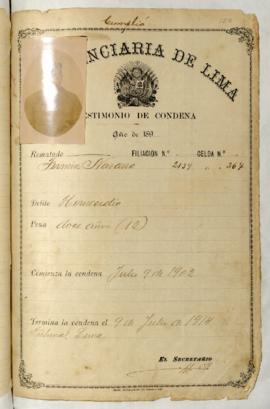 Cumplió
PENITENCIARIA DE LIMA
TESTIMONIO DE CONDENA
Año de 189
Rematado FILIACIÓN N.º 2134 CELDA N.º 364
Fermín
Delito Homicidio
Pena doce años (12)
Comienza la condena Julio 9 de 1902
Termina la condena el 9 de Julio de 1914
Tribunal Lima
EL SECRETARIO